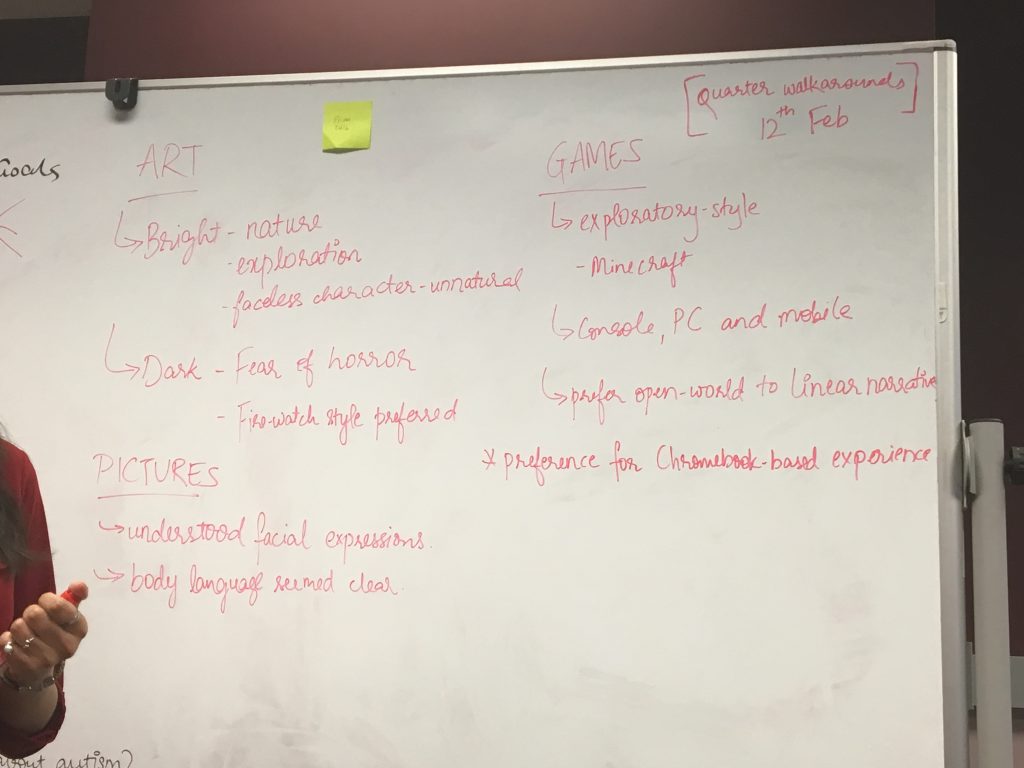 [Quarter walkarounds]
12th Feb
Goals
ART
↳ Bright - nature
- exploration
- faceless character - unnatural
↳ Dark - Fear of horror
- Firewatch style preferred
PICTURES
↳ understood facial expressions.
↳ body language seemed clear.
GAMES
↳ exploratory-style
- Minecraft
↳ Console, PC and mobile
↳ prefer open-world to linear narrative
* preference for Chromebook-based experience
autism)